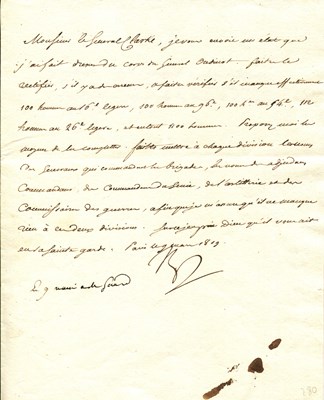 Monsieur le Général Clarke, je vous envoie un état que
j'ai fait dresser du corps du Général Oudinot faites le
rectifier, s'il y a des erreurs, et faites vérifier s'il manque effectivement
100 hommes au 16e légère, 100 hommes au 96e, 100 hes au
hommes au 26e légère, et en tout 800 hommes. Proposez moi les
moyens de les completter. faites mettre à chaque division les noms
des Généraux qui commandent les brigades, les noms des adjudans
Commandans, des Commandans du Génie, de l'artillerie et des
Commissaires des guerres, afin que je m'assure qu'il ne manque
rien à ces deux divisions. Sur ce je prie Dieu qu'il vous ait
en sa Sainte garde. Paris le 9 mars 1809.
Le 9
130